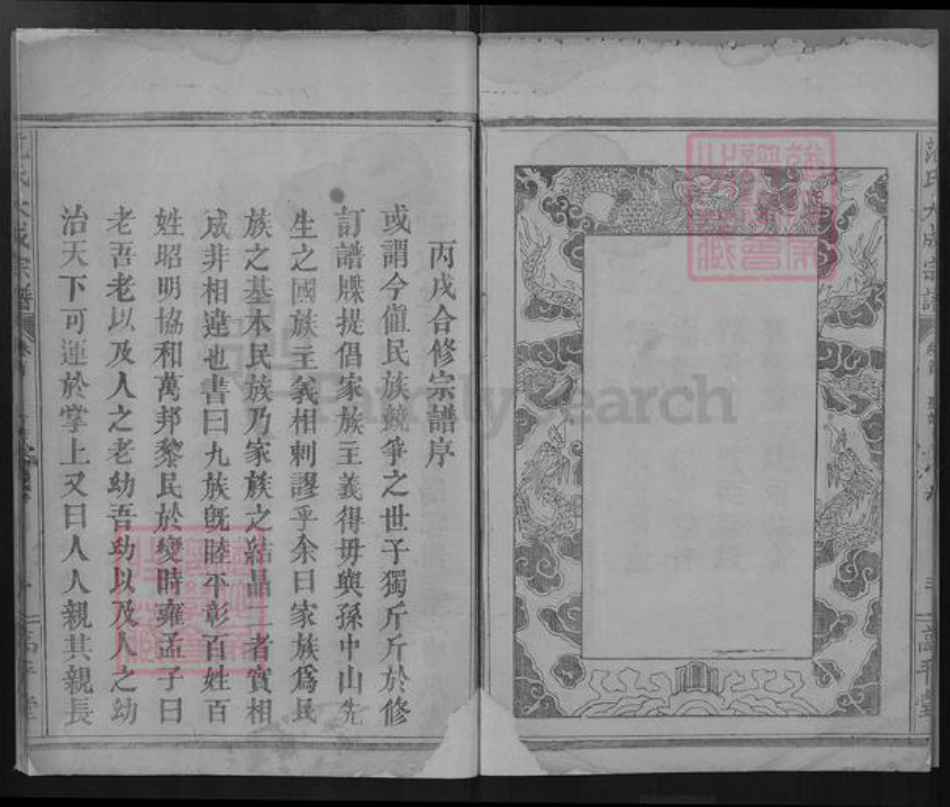 范氏大成宗譜
高平堂
丙戌合修宗譜序
或謂今値民族競爭之世子獨斤斤於修
訂譜牒提倡家族主義得毋與孫中山先
生之國族主義相剌謬乎余曰家族為民
族之基本民族乃家族之結晶二者實相
成非相違也書曰九族既睦平彰百姓百
姓昭明協和萬邦黎民於變時雍孟子曰
老吾老以及人之老幼吾幼以及人之幼
治天下可運於掌上又曰人人親其親長
氏大成宗譜
高平堂
FamilySearch